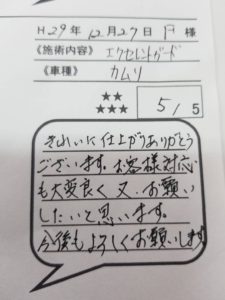 H29年12月27日 F様
《施術内容》エクセレントガード
《車種》カムリ
★★
★★★ 5/5
きれいに仕上がりありがとう
ございます。お客様対応
も大変良く又、お願い
したいと思います。
今後もよろしくお願いします